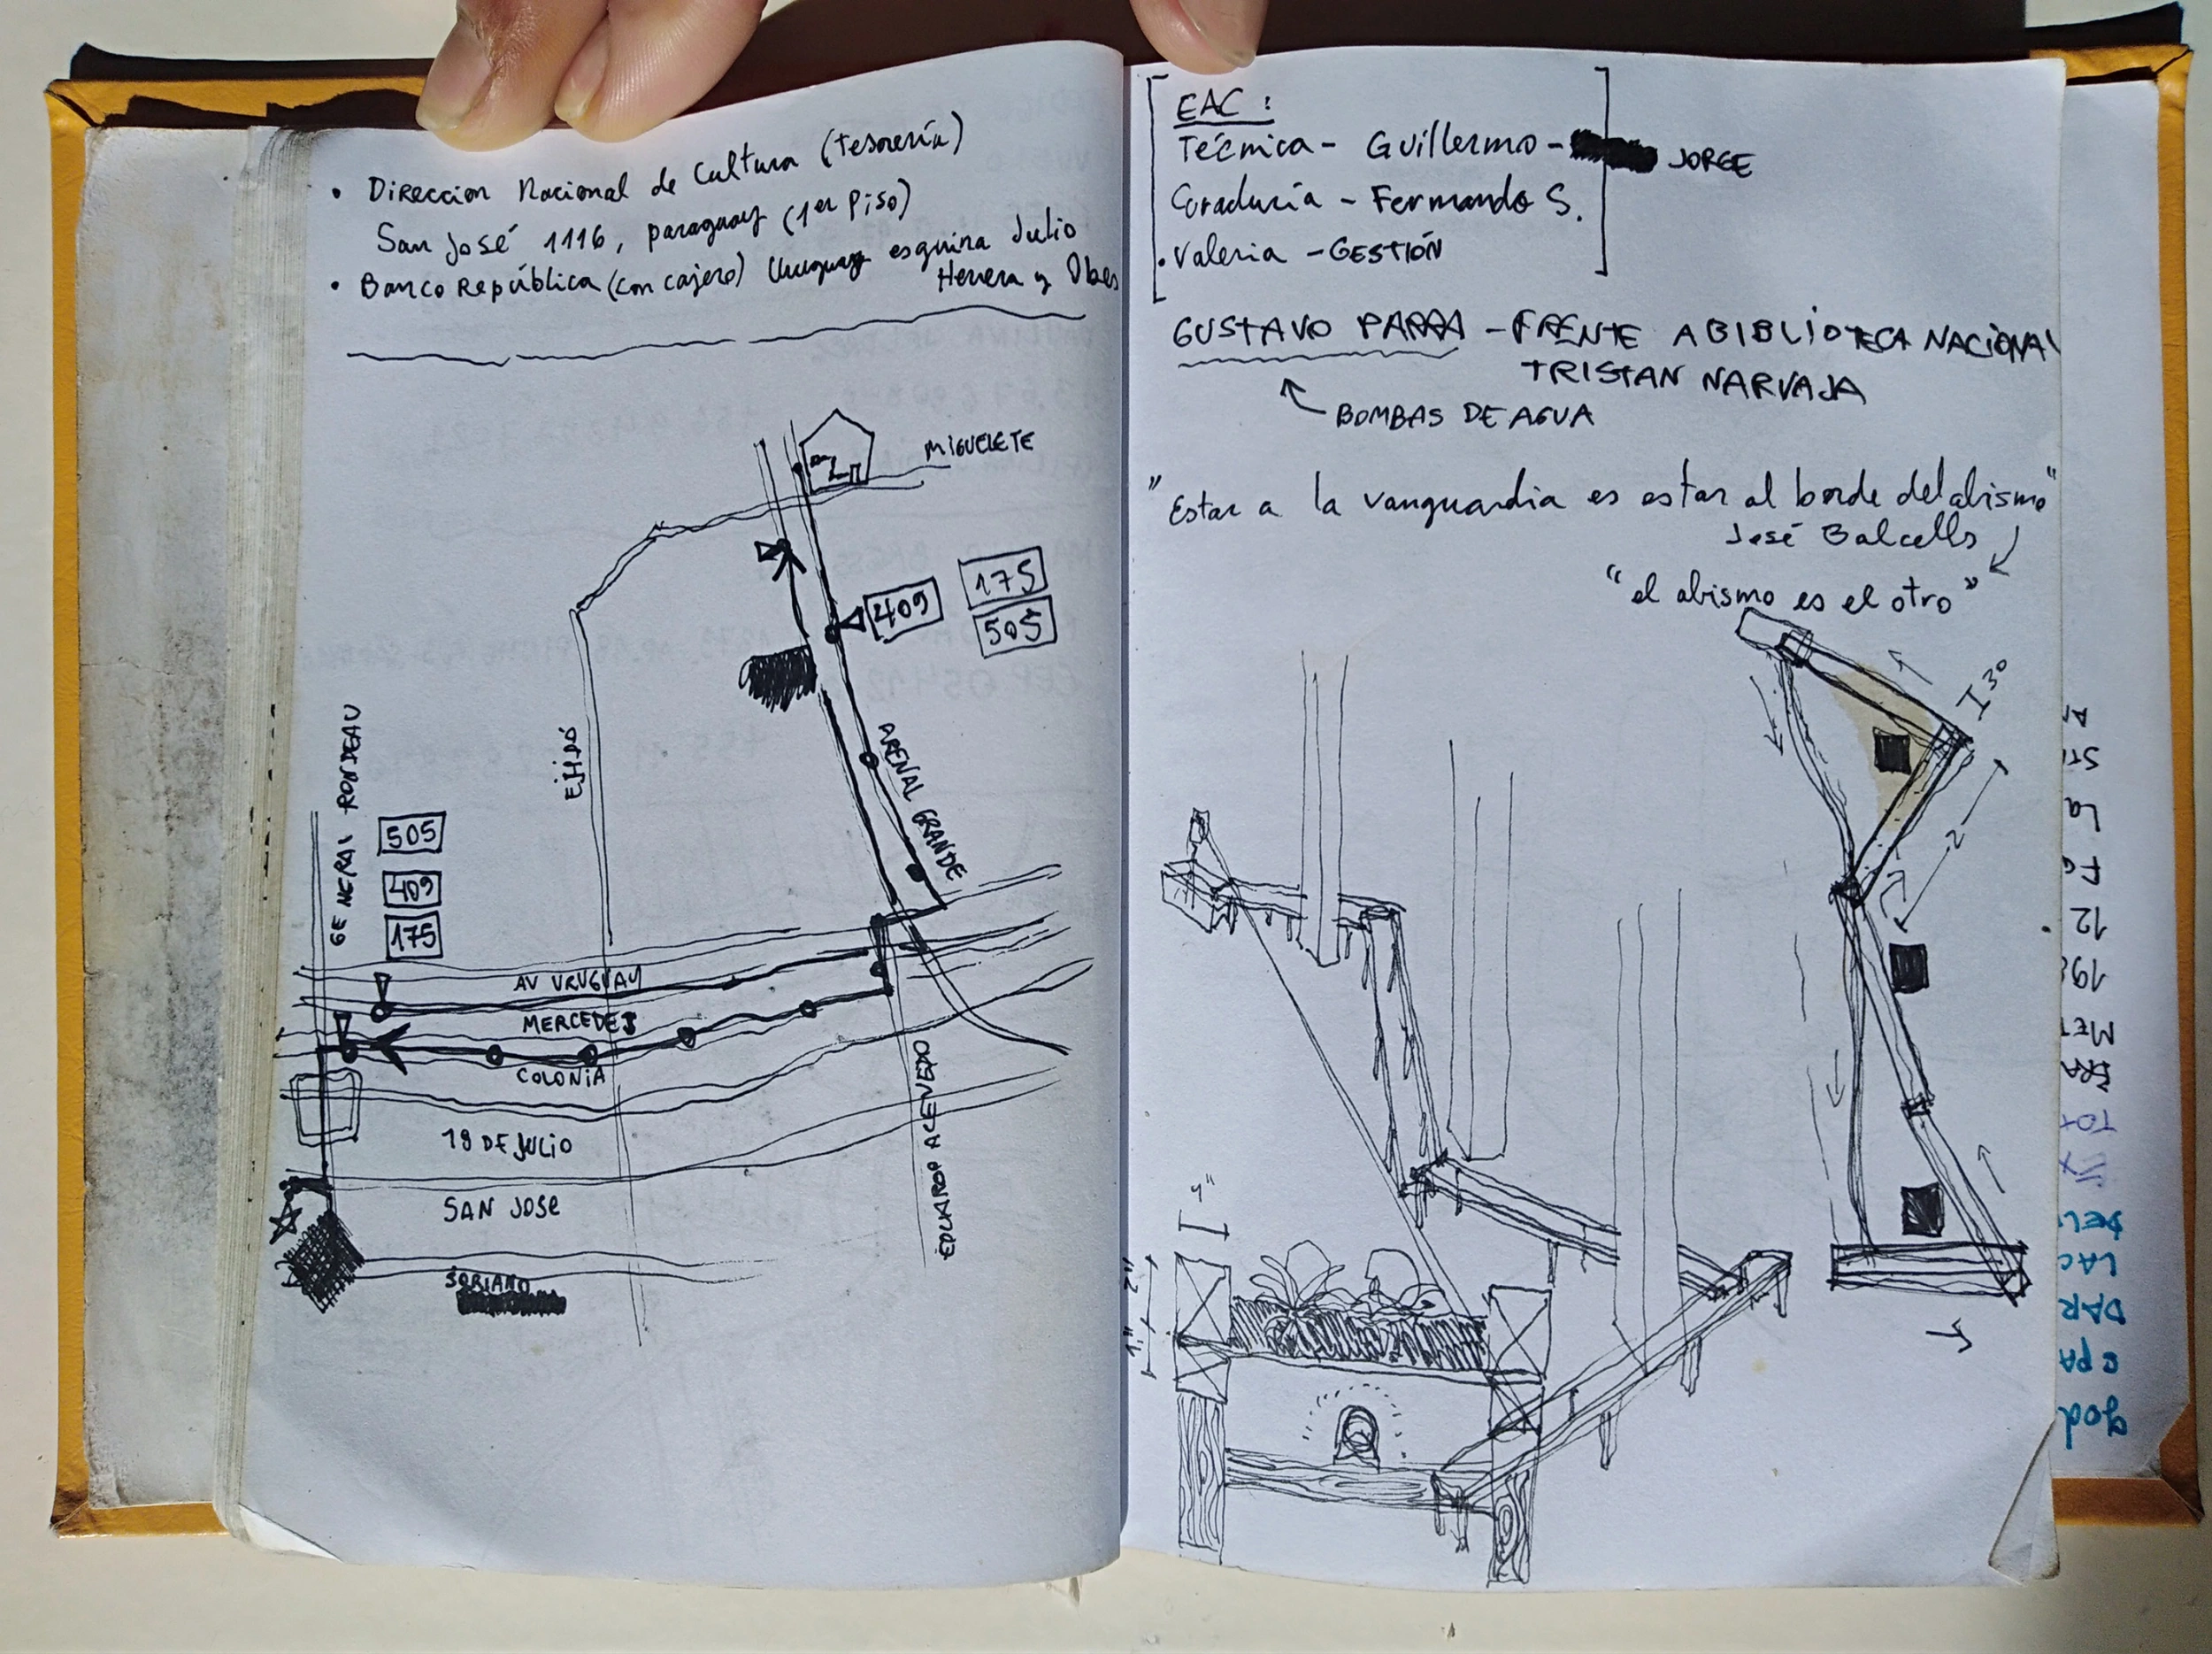 • Direccion Nacional de Cultura (Tesorería)
San José 1116, paraguay (1er Piso)
• Banco República (con cajero) Uruguay esquina Julio
Herrera y Obes
MIGUELETE
409
175
505
EJIDO
ARENAL GRANDE
GENERAL RONDEAU
505
409
175
AV URUGUAY
MERCEDES
COLONIA
18 DE JULIO
SAN JOSE
SORIANO
EDUARDO ACEVEDO
EAC:
Técnica - Guillermo - JORGE
Curaduría - Fernando S.
• Valeria - GESTIÓN
GUSTAVO PARRA - FRENTE A BIBLIOTECA NACIONAL
TRISTAN NARVAJA
BOMBAS DE AGUA
"Estar a la vanguardia es estar al borde del abismo"
José Balcells
"el abismo es el otro"
30
2
4"
2"
1"